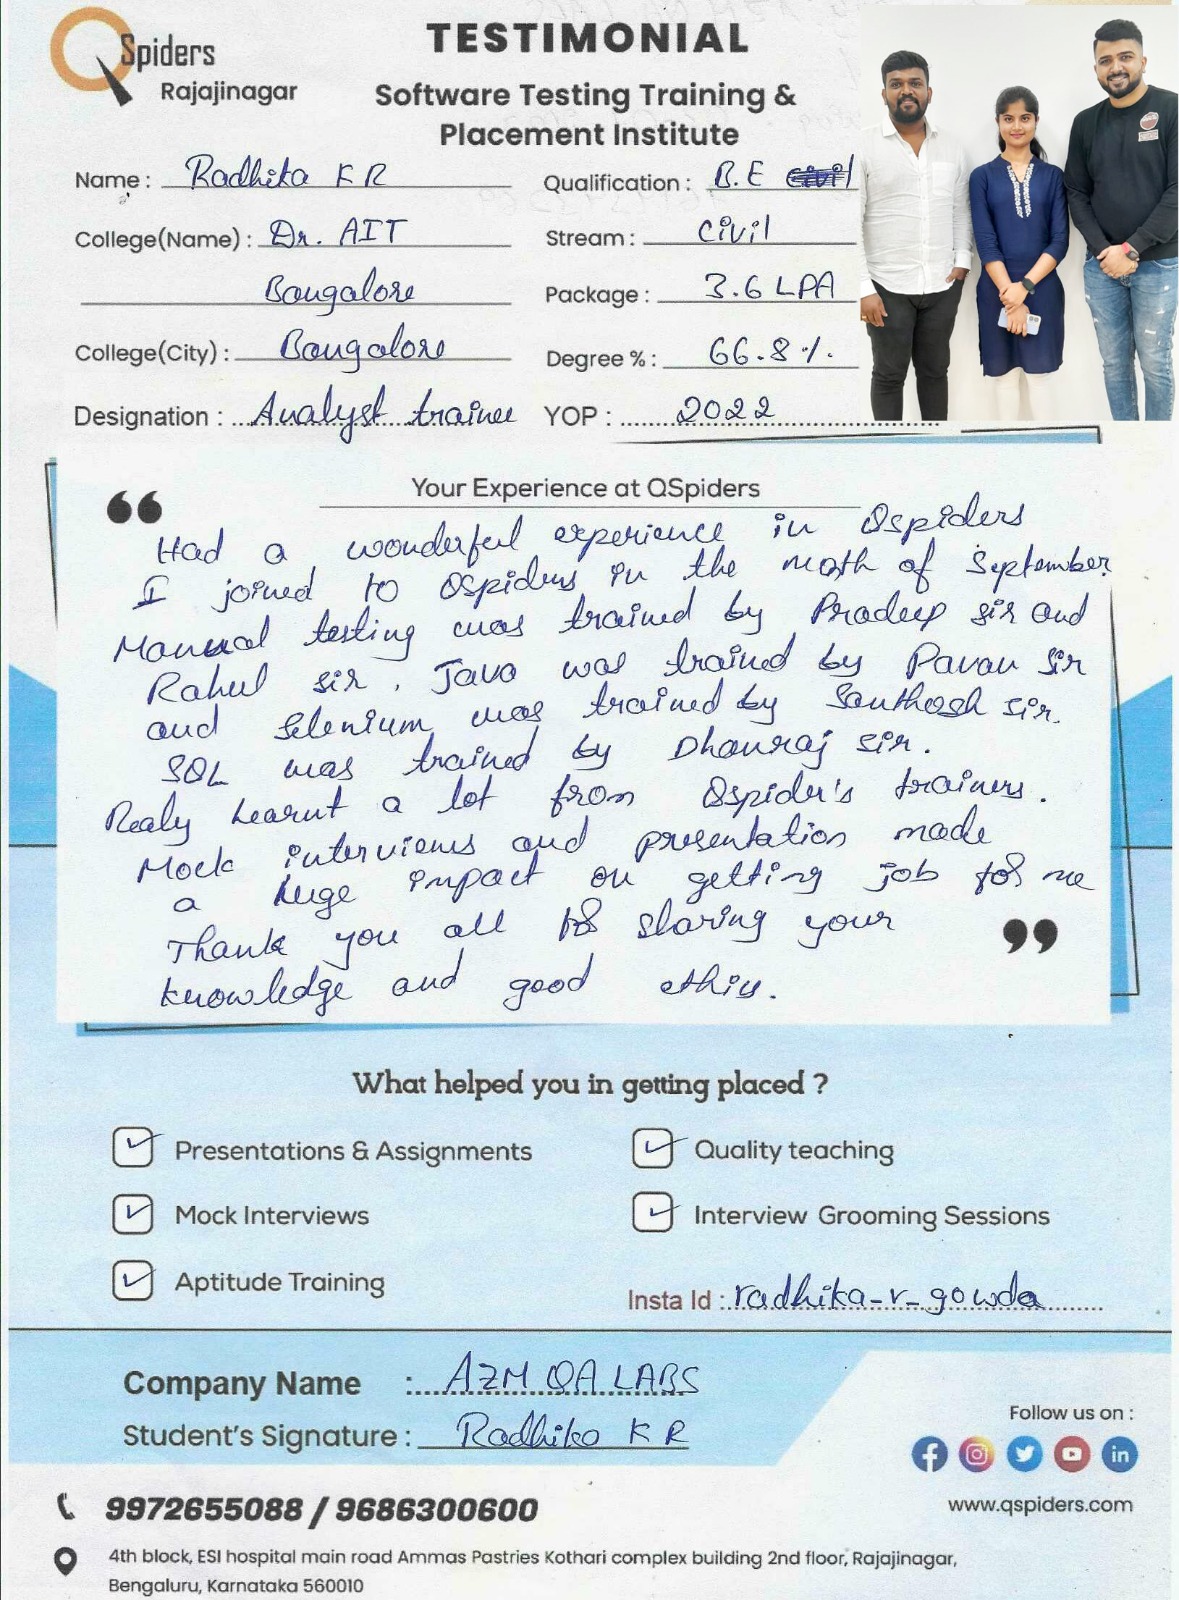 QSpiders
Rajajinagar
TESTIMONIAL
Software Testing Training &
Placement Institute
Name : Radhika K R
Qualification : B.E Civil
College(Name) : Dr. AIT
Stream : Civil
Bangalore
Package : 3.6 LPA
College(City) : Bangalore
Degree % : 66.8%.
Designation : Analyst trainee
YOP : 2022
Your Experience at QSpiders
Had a wonderful experience in Qspiders
I joined to Qspiders in the moth of September
Manual testing was trained by Pradeep sir and
Rahul sir. Java was trained by Pavan sir
and Selenium was trained by Santhosh sir.
SQL was trained by Dhanraj sir.
Realy Learnt a lot from Qspider's trainers.
Mock interviews and presentation made
a huge impact on getting job for me
Thank you all for sharing your
knowledge and good ethics.
What helped you in getting placed ?
Presentations & Assignments
Quality teaching
Mock Interviews
Interview Grooming Sessions
Aptitude Training
Insta Id : radhika_r_gowda
Company Name : AZM QA LABS
Student's Signature : Radhika K R
Follow us on :
www.qspiders.com
9972655088 / 9686300600
4th block, ESI hospital main road Ammas Pastries Kothari complex building 2nd floor, Rajajinagar,
Bengaluru, Karnataka 560010